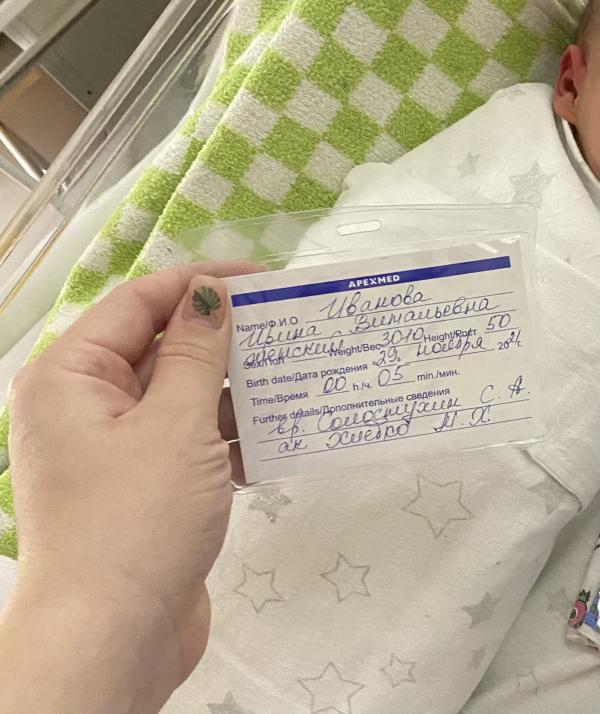 APEXMED
Name/Ф.И.О Иванова
Ирина Витальевна
Sex/Пол женский Weight/Вес 3010 Height/Рост 50
Birth date/Дата рождения 29. ноября 2021г.
Time/Время 00 h./ч. 05 min./мин.
Further details/Дополнительные сведения
вр. Солостухин С. А.
ак. Хмебро М. Х.